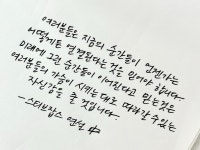 여러분들은 지금의 순간들이 언젠가는
어떻게든 연결된다는 것을 믿어야 합니다.
미래에 그런 순간들이 이어진다고 믿는것은
여러분들의 가슴이 시키는대로 따라갈수있는
자신감을 줄 것입니다.
- 스티브잡스 연설 中